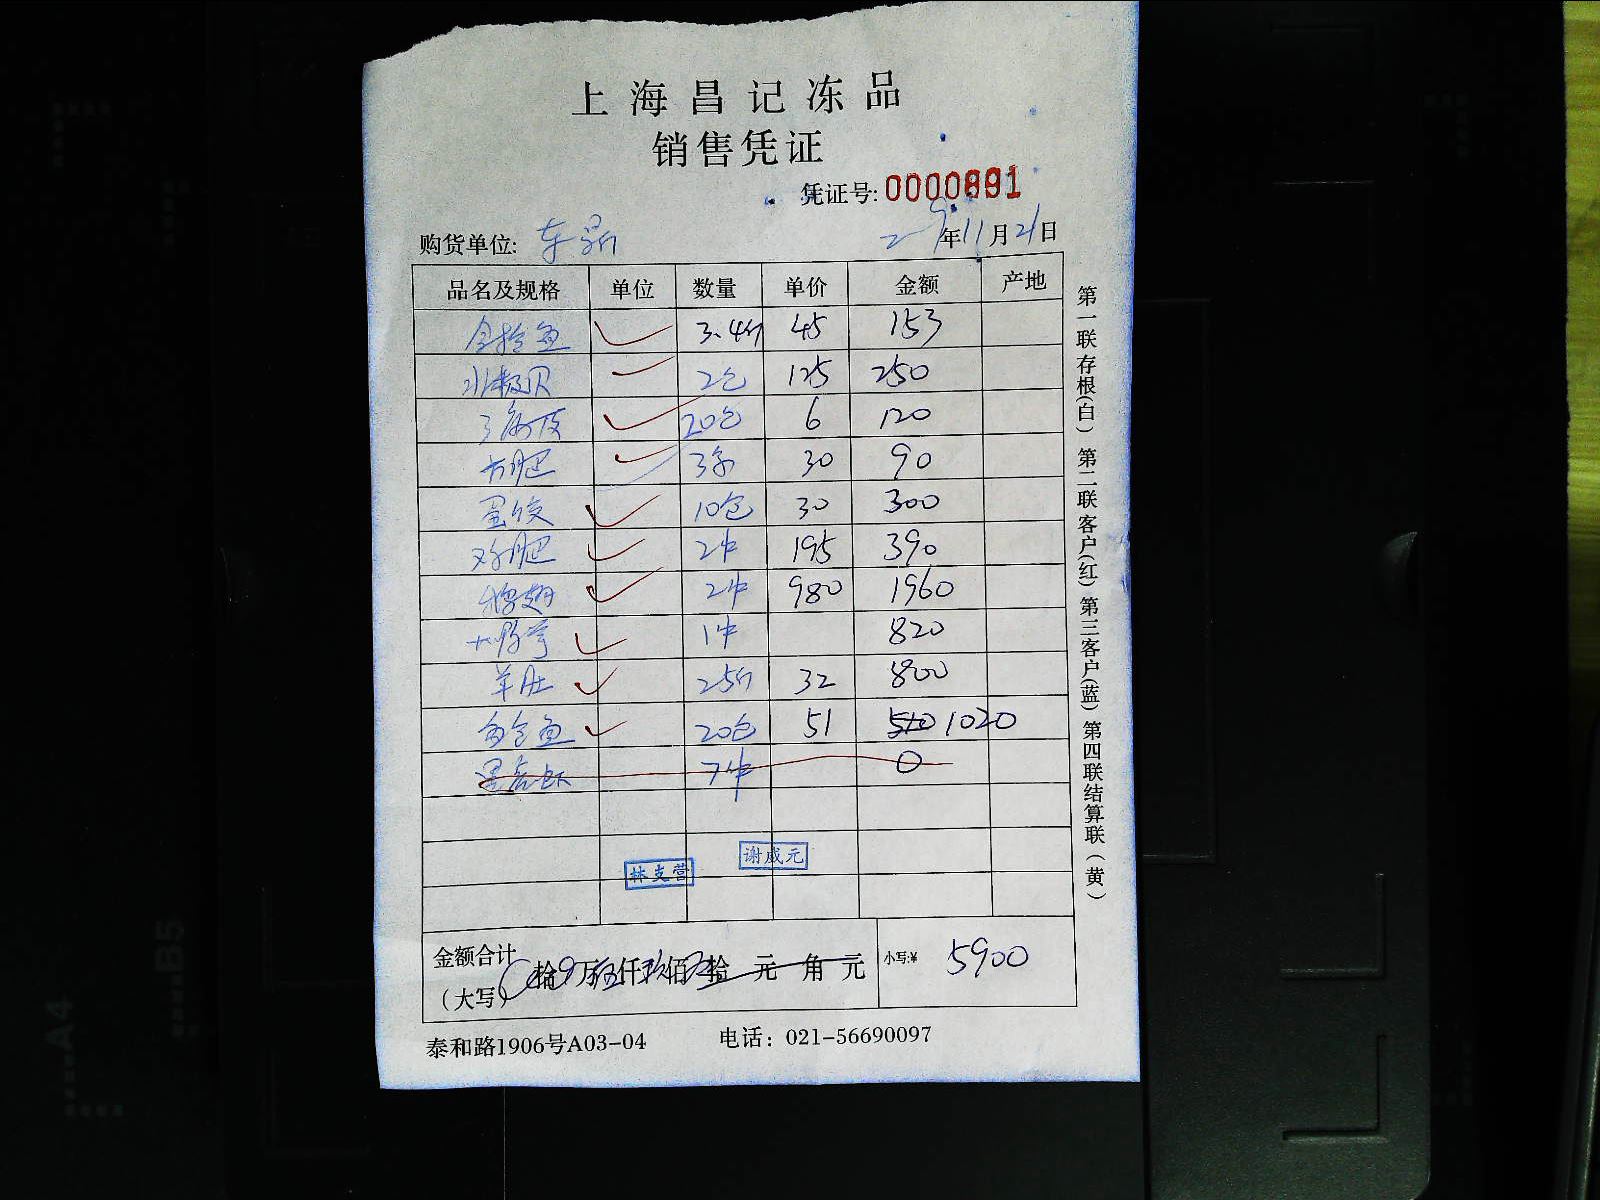 上海昌记冻品
销售凭证
凭证号: 0000891
购货单位: 年11月21日
品名及规格 单位 数量 单价 金额 产地
3.4斤 45 153
2包 125 250
20包 6 120
30 90
蛋饺 10包 30 300
2件 195 390
鸭翅 2件 980 1960
1件 820
羊肚 25斤 32 800
20包 51 510 1020
黑虎虾 7件 0
林支营 谢成元
金额合计
(大写) 拾 万伍仟玖佰 拾 元 角 元 小写:¥ 5900
泰和路1906号A03-04 电话: 021-56690097
第一联存根(白) 第二联客户(红) 第三客户(蓝) 第四联结算联(黄)